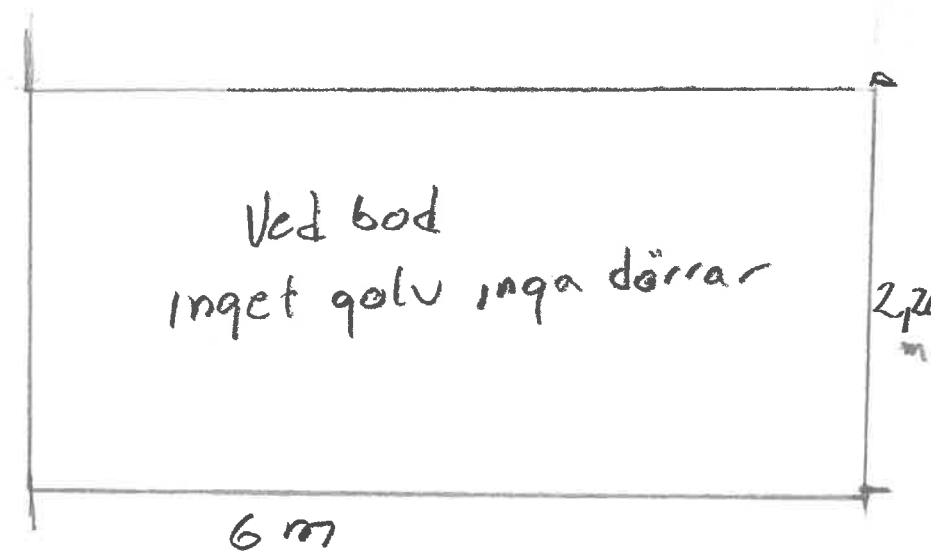 Ved bod
inget golv inga dörrar
m
6 m